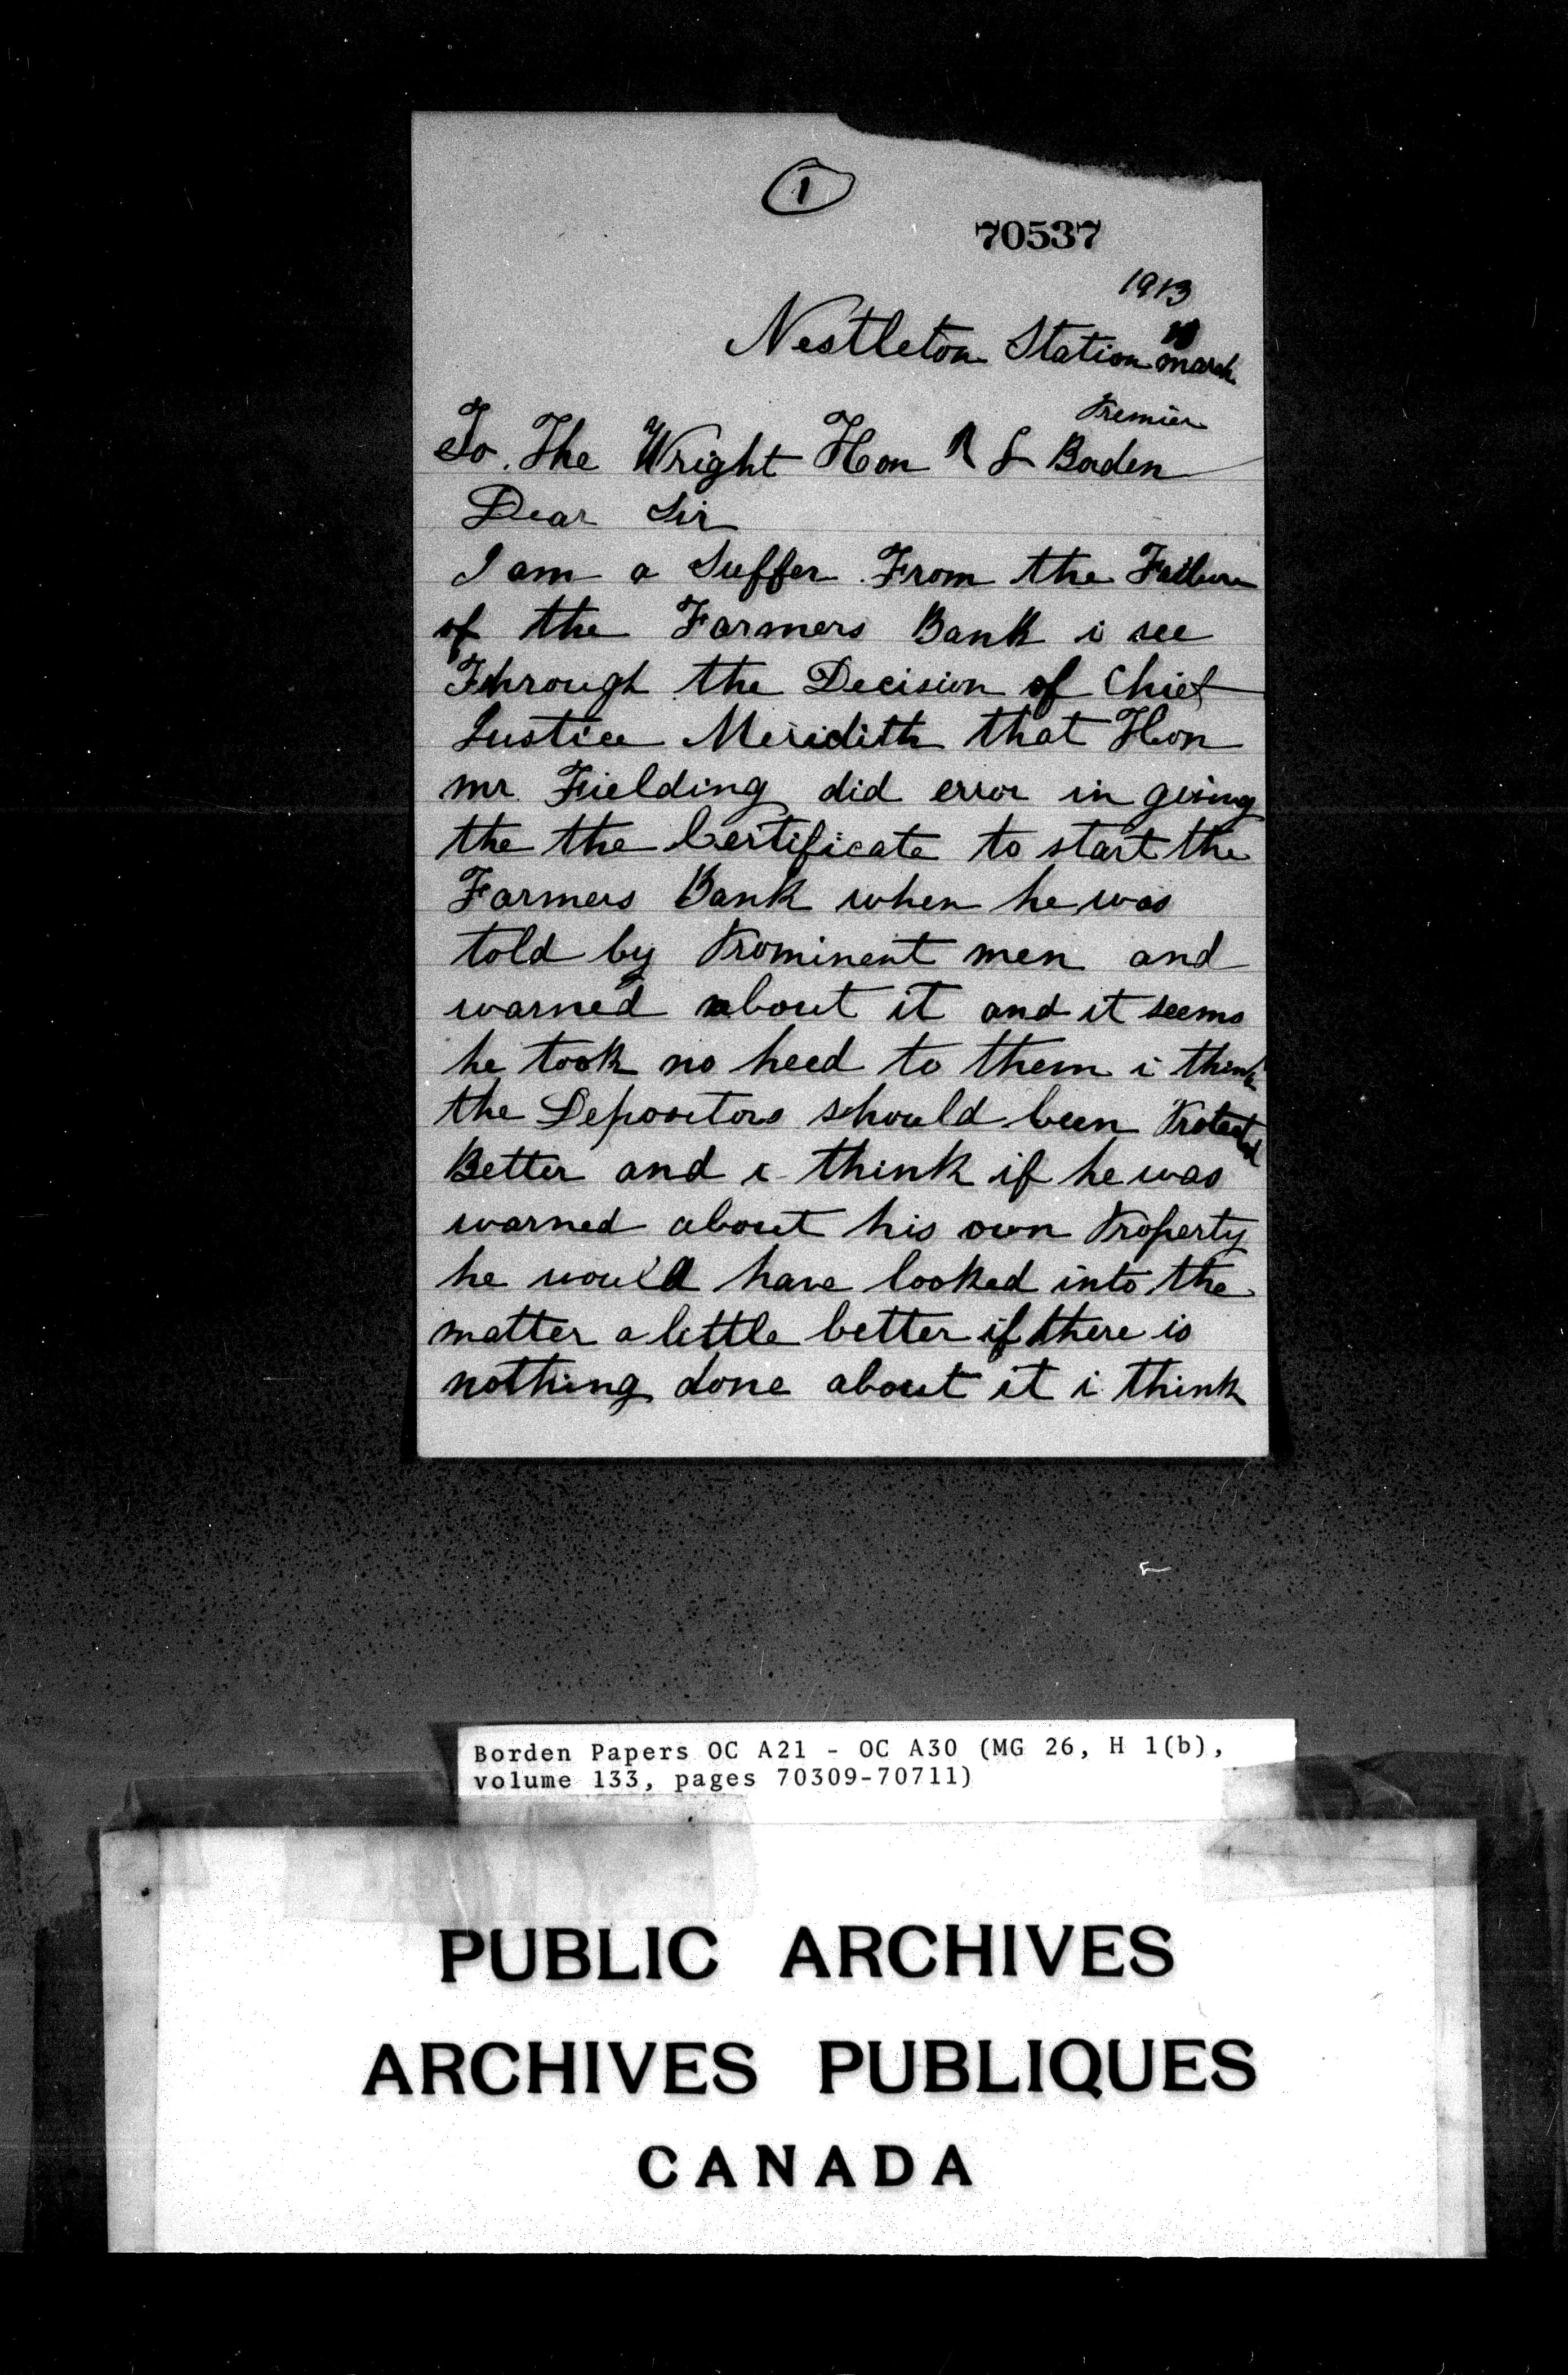 1
70537
1913
Nestleton Station march
Premier
To. The Wright Hon R L Borden
Dear Sir
I am a Suffer From the Failure
of the Farmers Bank i see
Through the Decision of Chief
Justice Meridith that Hon
mr Fielding did error in giving
the the Certificate to start the
Farmers Bank when he was
told by Prominent men and
warned about it and it seems
he took no heed to them i think
the Depositors should been Protected
Better and i think if he was
warned about his own Property
he would have looked into the
matter a little better if there is
nothing done about it i think
Borden Papers OC A21 - OC A30 (MG 26, H 1(b),
volume 133, pages 70309-70711)
PUBLIC ARCHIVES
ARCHIVES PUBLIQUES
CANADA